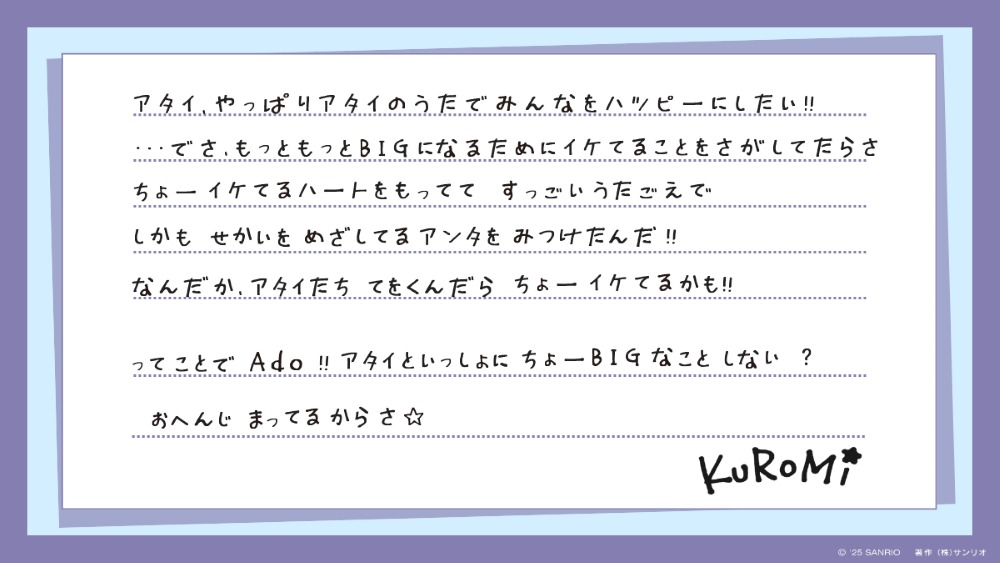 アタイ、やっぱりアタイのうたでみんなをハッピーにしたい!!
・・・でさ、もっともっとBIGになるためにイケてることをさがしてたらさ
ちょーイケてるハートをもってて すっごいうたごえで
しかも せかいを めざしてるアンタを みつけたんだ!!
なんだか、アタイたち てをくんだら ちょーイケてるかも!!
ってことで Ado!! アタイといっしょに ちょーBIGなこと しない ?
おへんじ まってるからさ☆
KUROMi
© '25 SANRIO 著作 (株)サンリオ